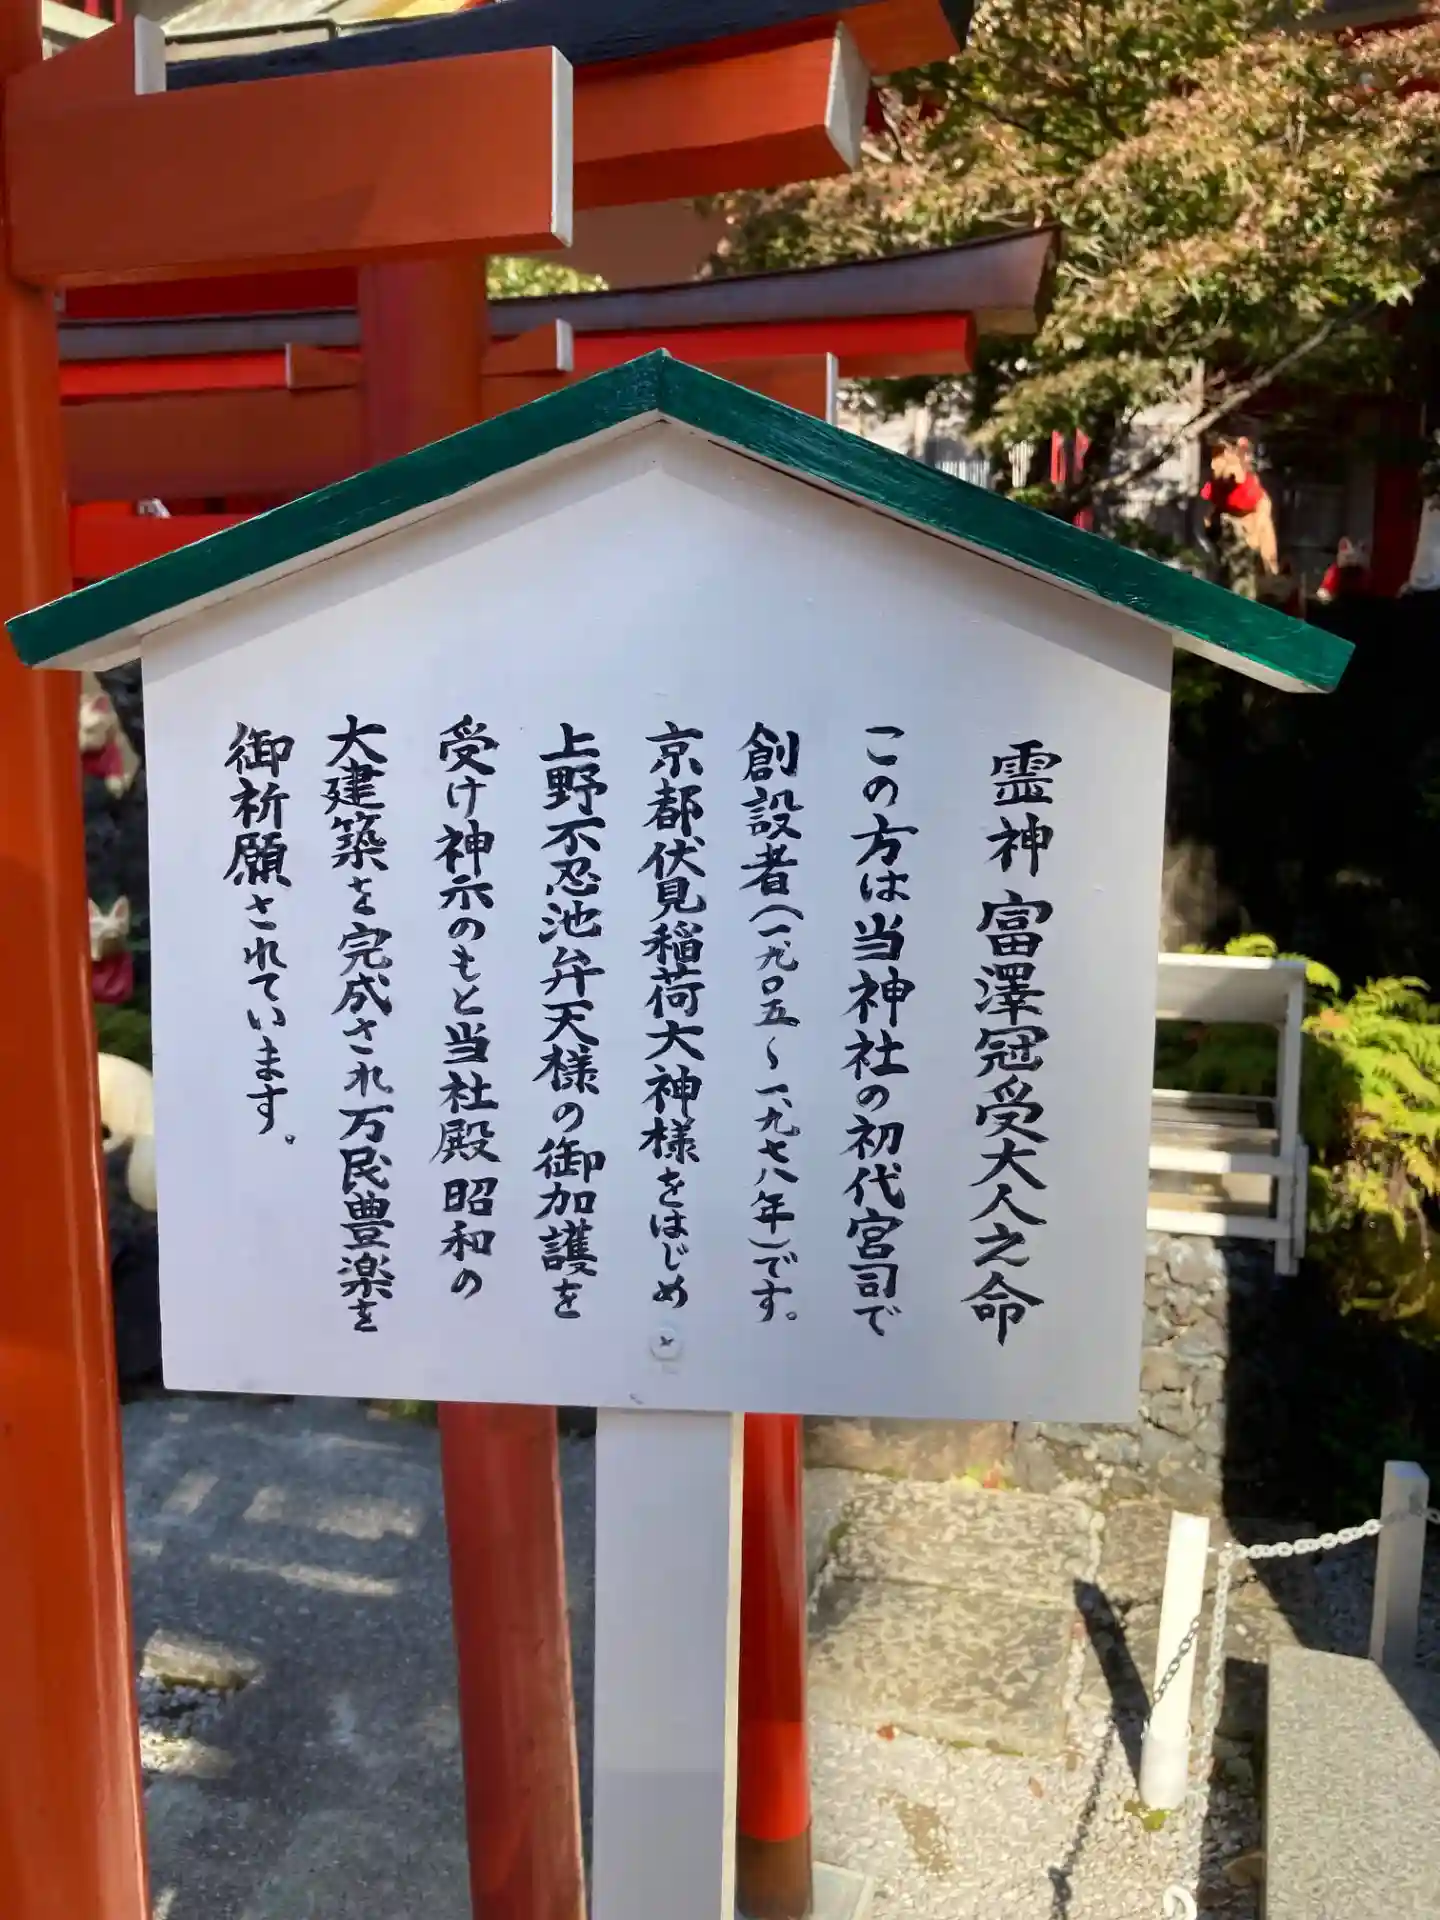 霊神 富澤冠受大人之命
この方は当神社の初代宮司で
創設者(一九〇五〜一、九七八年)です。
京都伏見稲荷大神様をはじめ
上野不忍池弁天様の御加護を
受け神示のもと当社殿昭和の
大建築を完成され万民豊楽を
御祈願されています。